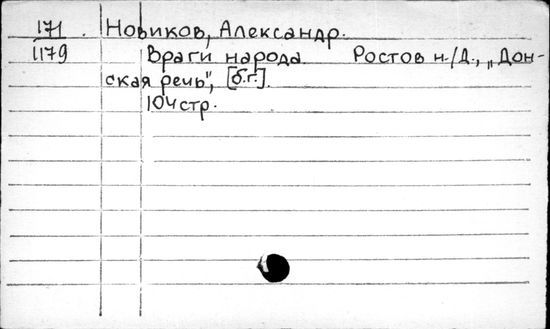 171 . Новиков, Александр.
1179 Враги народа. Ростов н./Д., „Дон-
ская речь", [б.г.].
104 стр.